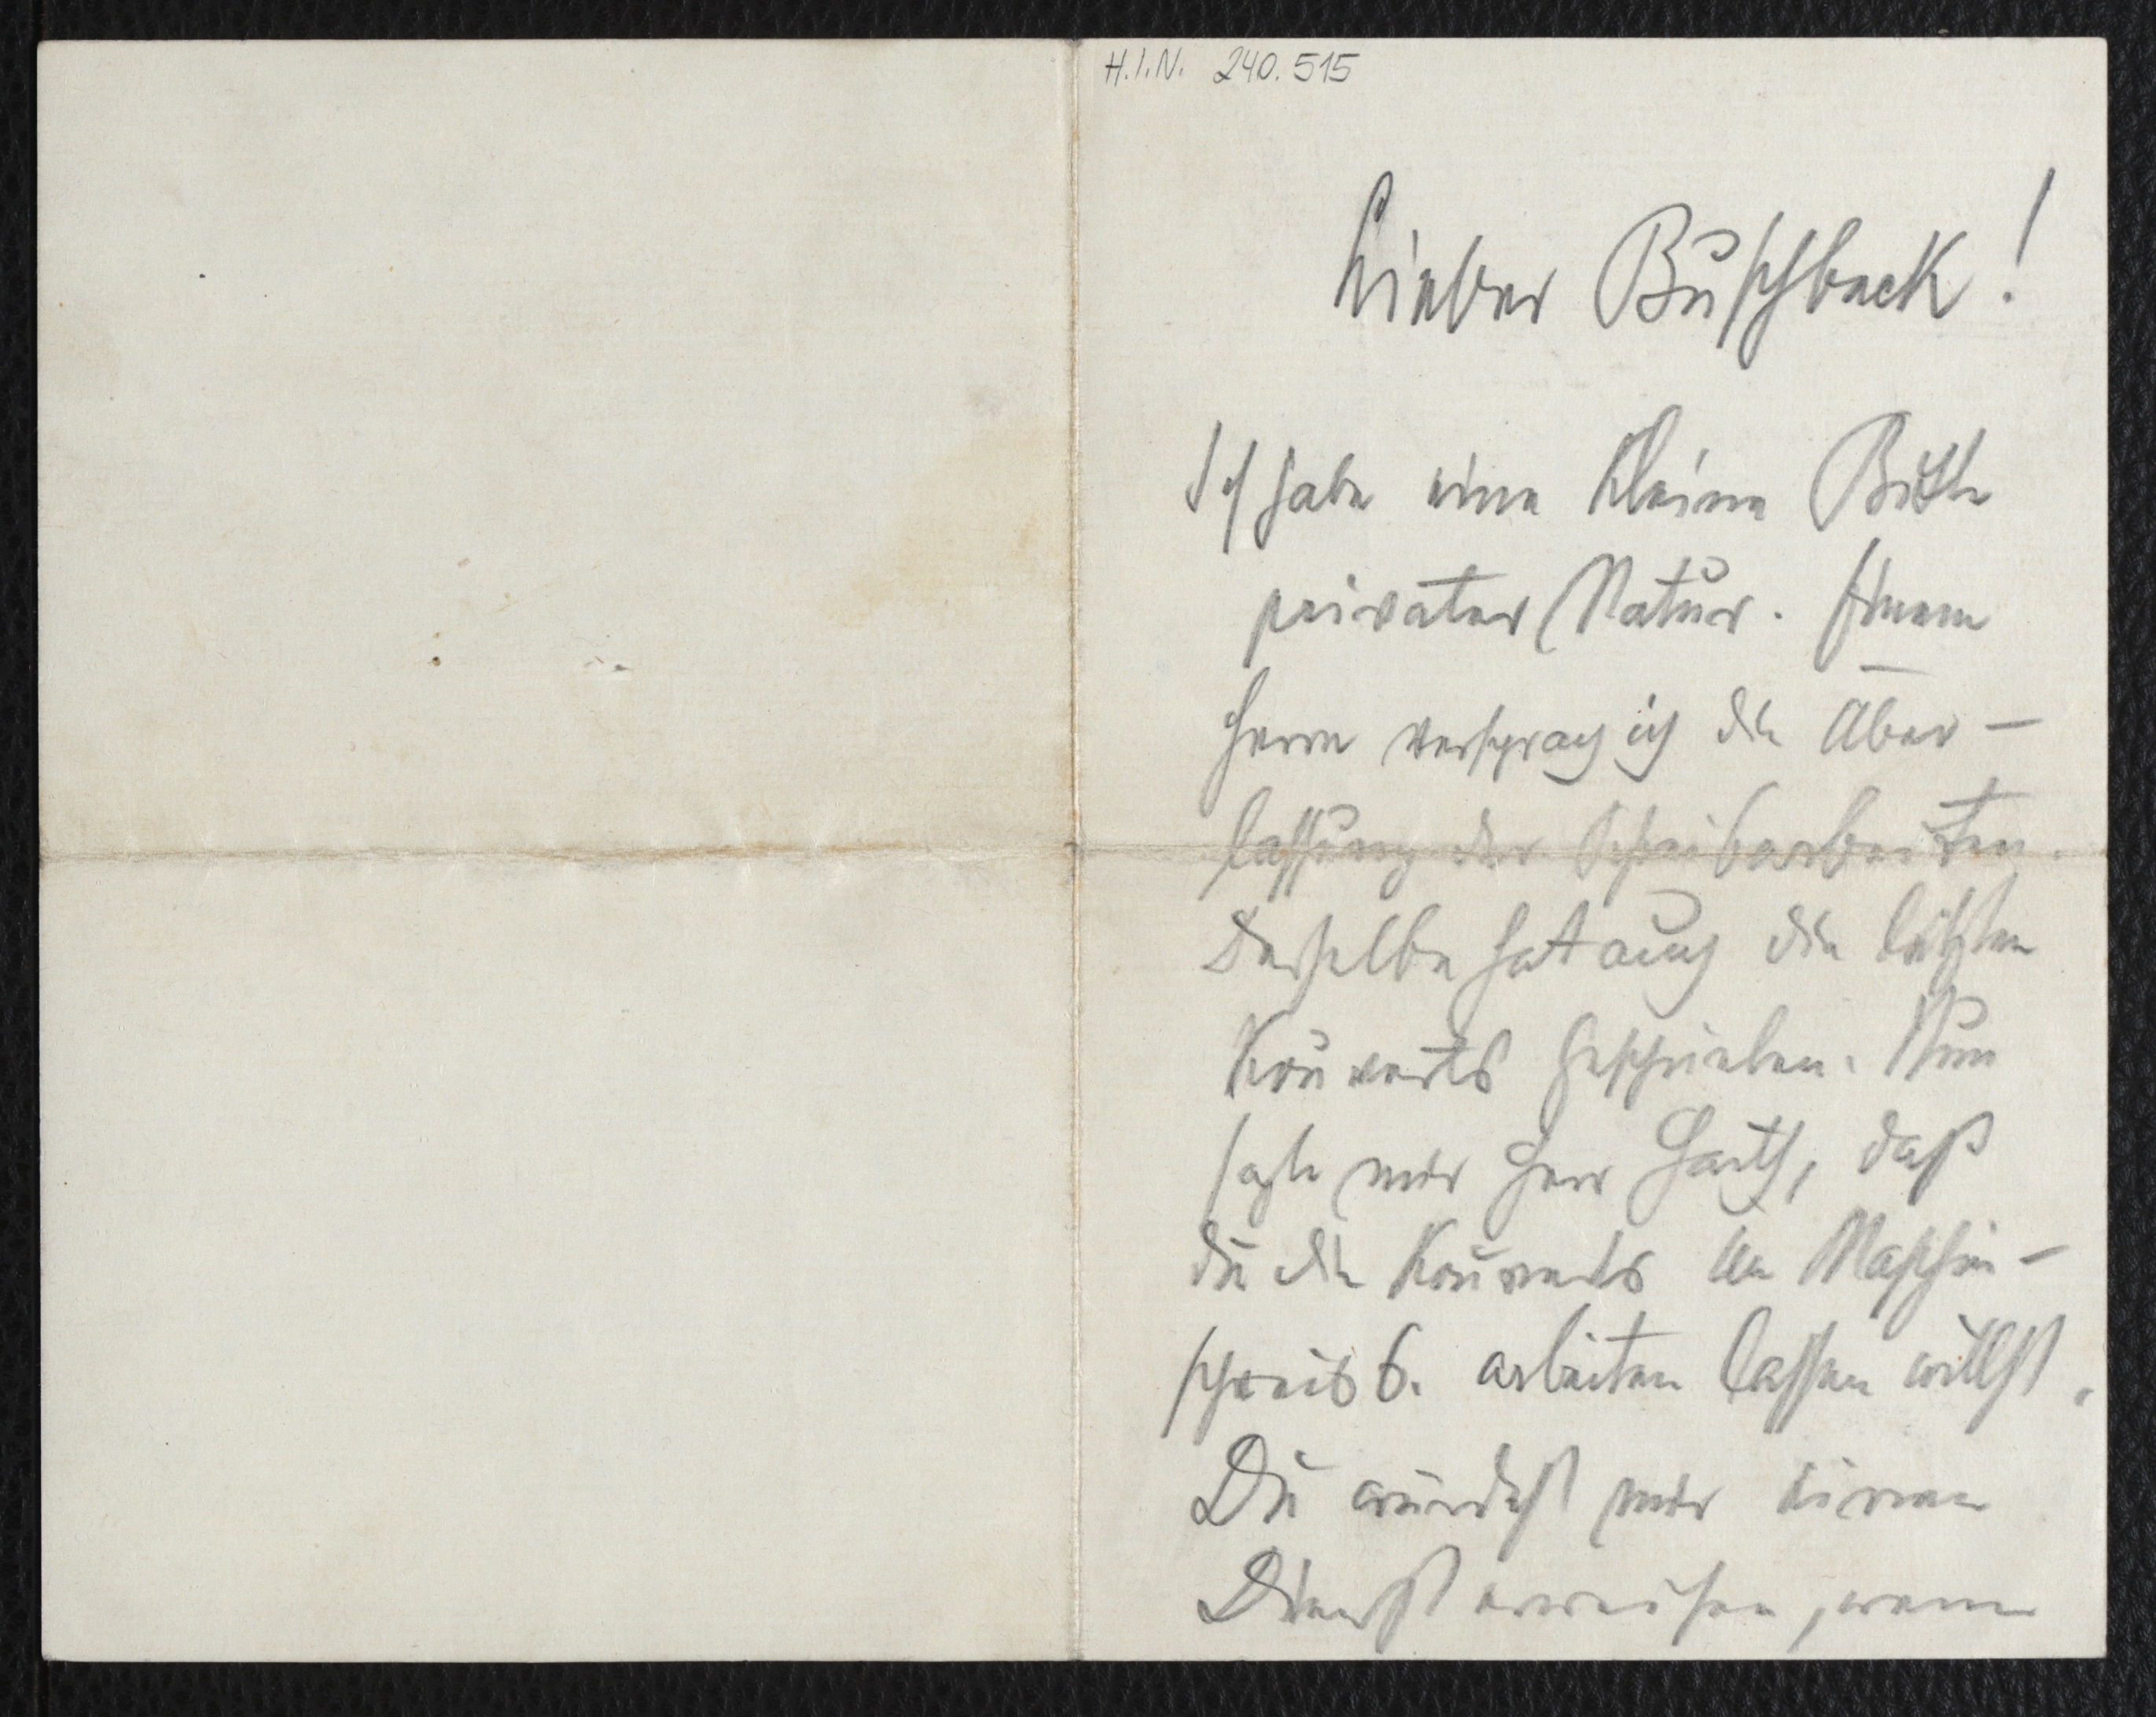 H.I.N. 240.515
Lieber Buschbeck!
Ich habe eine kleine Bitte
privater Natur. Einem
Herrn versprach ich die Über-
lassung der Schreibarbeiten.
Derselbe hat auch die letzten
Kouverts geschrieben. Nun
sagte mir Herr, daß
du die Kouverts Maschin-
schreibb. arbeiten lassen willst.
Du würdest mir einen
Dienst erweisen, wenn